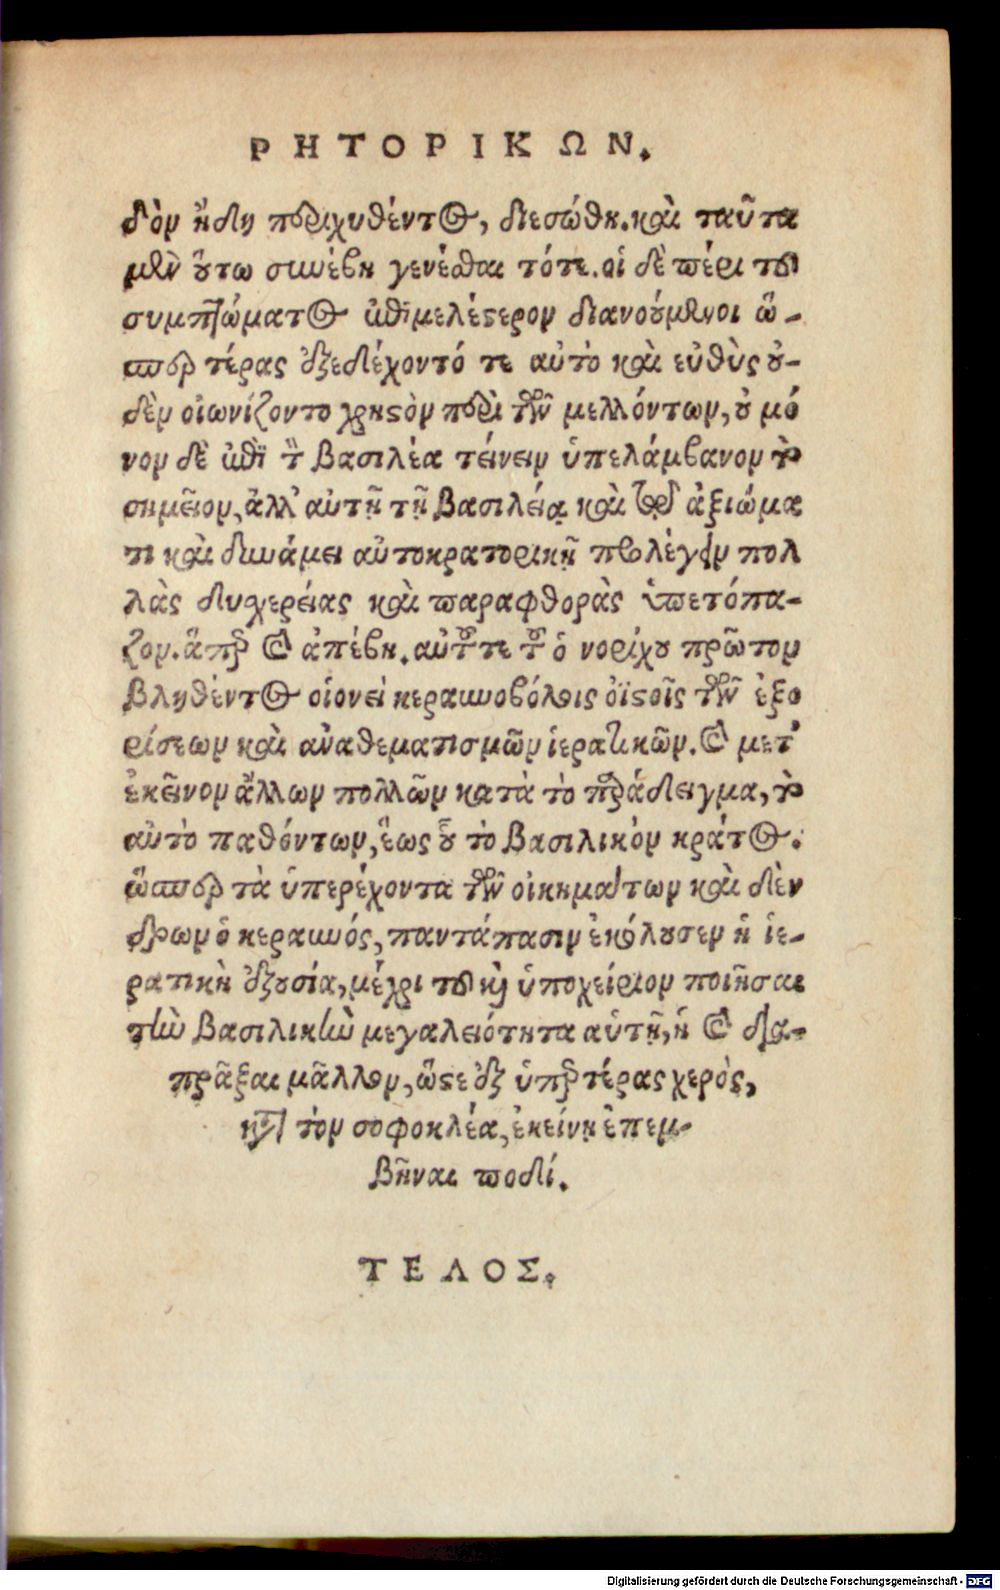 ΡΗΤΟΡΙΚΩΝ.
δὸν ἤδη περιχυθέντος, διεσώθη. καὶ ταῦτα
μὲν οὕτω συνέβη γενέσθαι τότε. οἱ δὲ περὶ τοῦ
συμπτώματος ἐπιμελέστερον διανούμενοι ὥ-
σπερ τέρας ἐξεδέχοντό τε αὐτὸ καὶ εὐθὺς οὐ-
δὲν οἰωνίζοντο χρηστὸν περὶ τῶν μελλόντων, οὐ μό
νον δὲ ἐπὶ τὸν βασιλέα τείνειν ὑπελάμβανον τὸ
σημεῖον, ἀλλ' αὐτῇ τῇ βασιλείᾳ καὶ τῷ ἀξιώμα
τι καὶ δυνάμει αὐτοκρατορικῇ προλέγειν πολ
λὰς δυχερείας καὶ παραφθορὰς ὑπετόπα-
ζον. ἅπερ καὶ ἀπέβη. αὐτοῦ τε τοῦ ὁ νορίχου πρῶτον
βληθέντος οἱονεὶ κεραυνοβόλοις ὀϊστοῖς τῶν ἐξο
ρίσεων καὶ ἀναθεματισμῶν ἱερατικῶν. καὶ μετ'
ἐκεῖνον ἄλλων πολλῶν κατὰ τὸ παράδειγμα, τὸ
αὐτὸ παθόντων, ἕως οὗ τὸ βασιλικὸν κράτος.
ὥσπερ τὰ ὑπερέχοντα τῶν οἰκημάτων καὶ δέν
δρων ὁ κεραυνός, παντάπασιν ἐκόλουσεν ἡ ἱε-
ρατικὴ ἐξουσία, μέχρι τοῦ καὶ ὑποχείριον ποιῆσαι
τὴν βασιλικὴν μεγαλειότητα αὑτῇ, ἢ καὶ δια-
πρᾶξαι μᾶλλον, ὥστε ἐξ ὑπερτέρας χερὸς,
κατὰ τὸν σοφοκλέα, ἐκείνῃ ἐπεμ-
βῆναι ποδί.
ΤΕΛΟΣ.
Digitalisierung gefördert durch die Deutsche Forschungsgemeinschaft - DFG